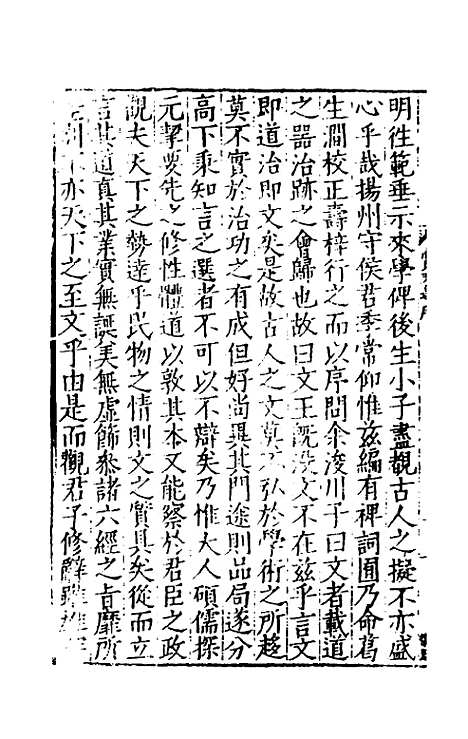 明徃範垂示來學俾後生小子盡覩古人之擬不亦盛
心乎哉揚州守侯君季常仰惟茲編有裨詞圃乃命葛
生澗校正壽梓行之而以序問余浚川子曰文者載道
之器治跡之會歸也故曰文王旣没文不在茲乎言文
即道治即文矣是故古人之文莫不弘於學術之所趍
莫不實於治功之有成但好尚異其門途則品局遂分
高下秉知言之選者不可以不辯矣乃惟大人碩儒探
元挈要先之修性體道以敦其本又能察於君臣之政
觀夫天下之勢達乎民物之情則文之質具矣從而立
言其道真其業實無諛美無虛飾叅諸六經之旨靡所
亦天下之至文乎由是而觀君子修辭